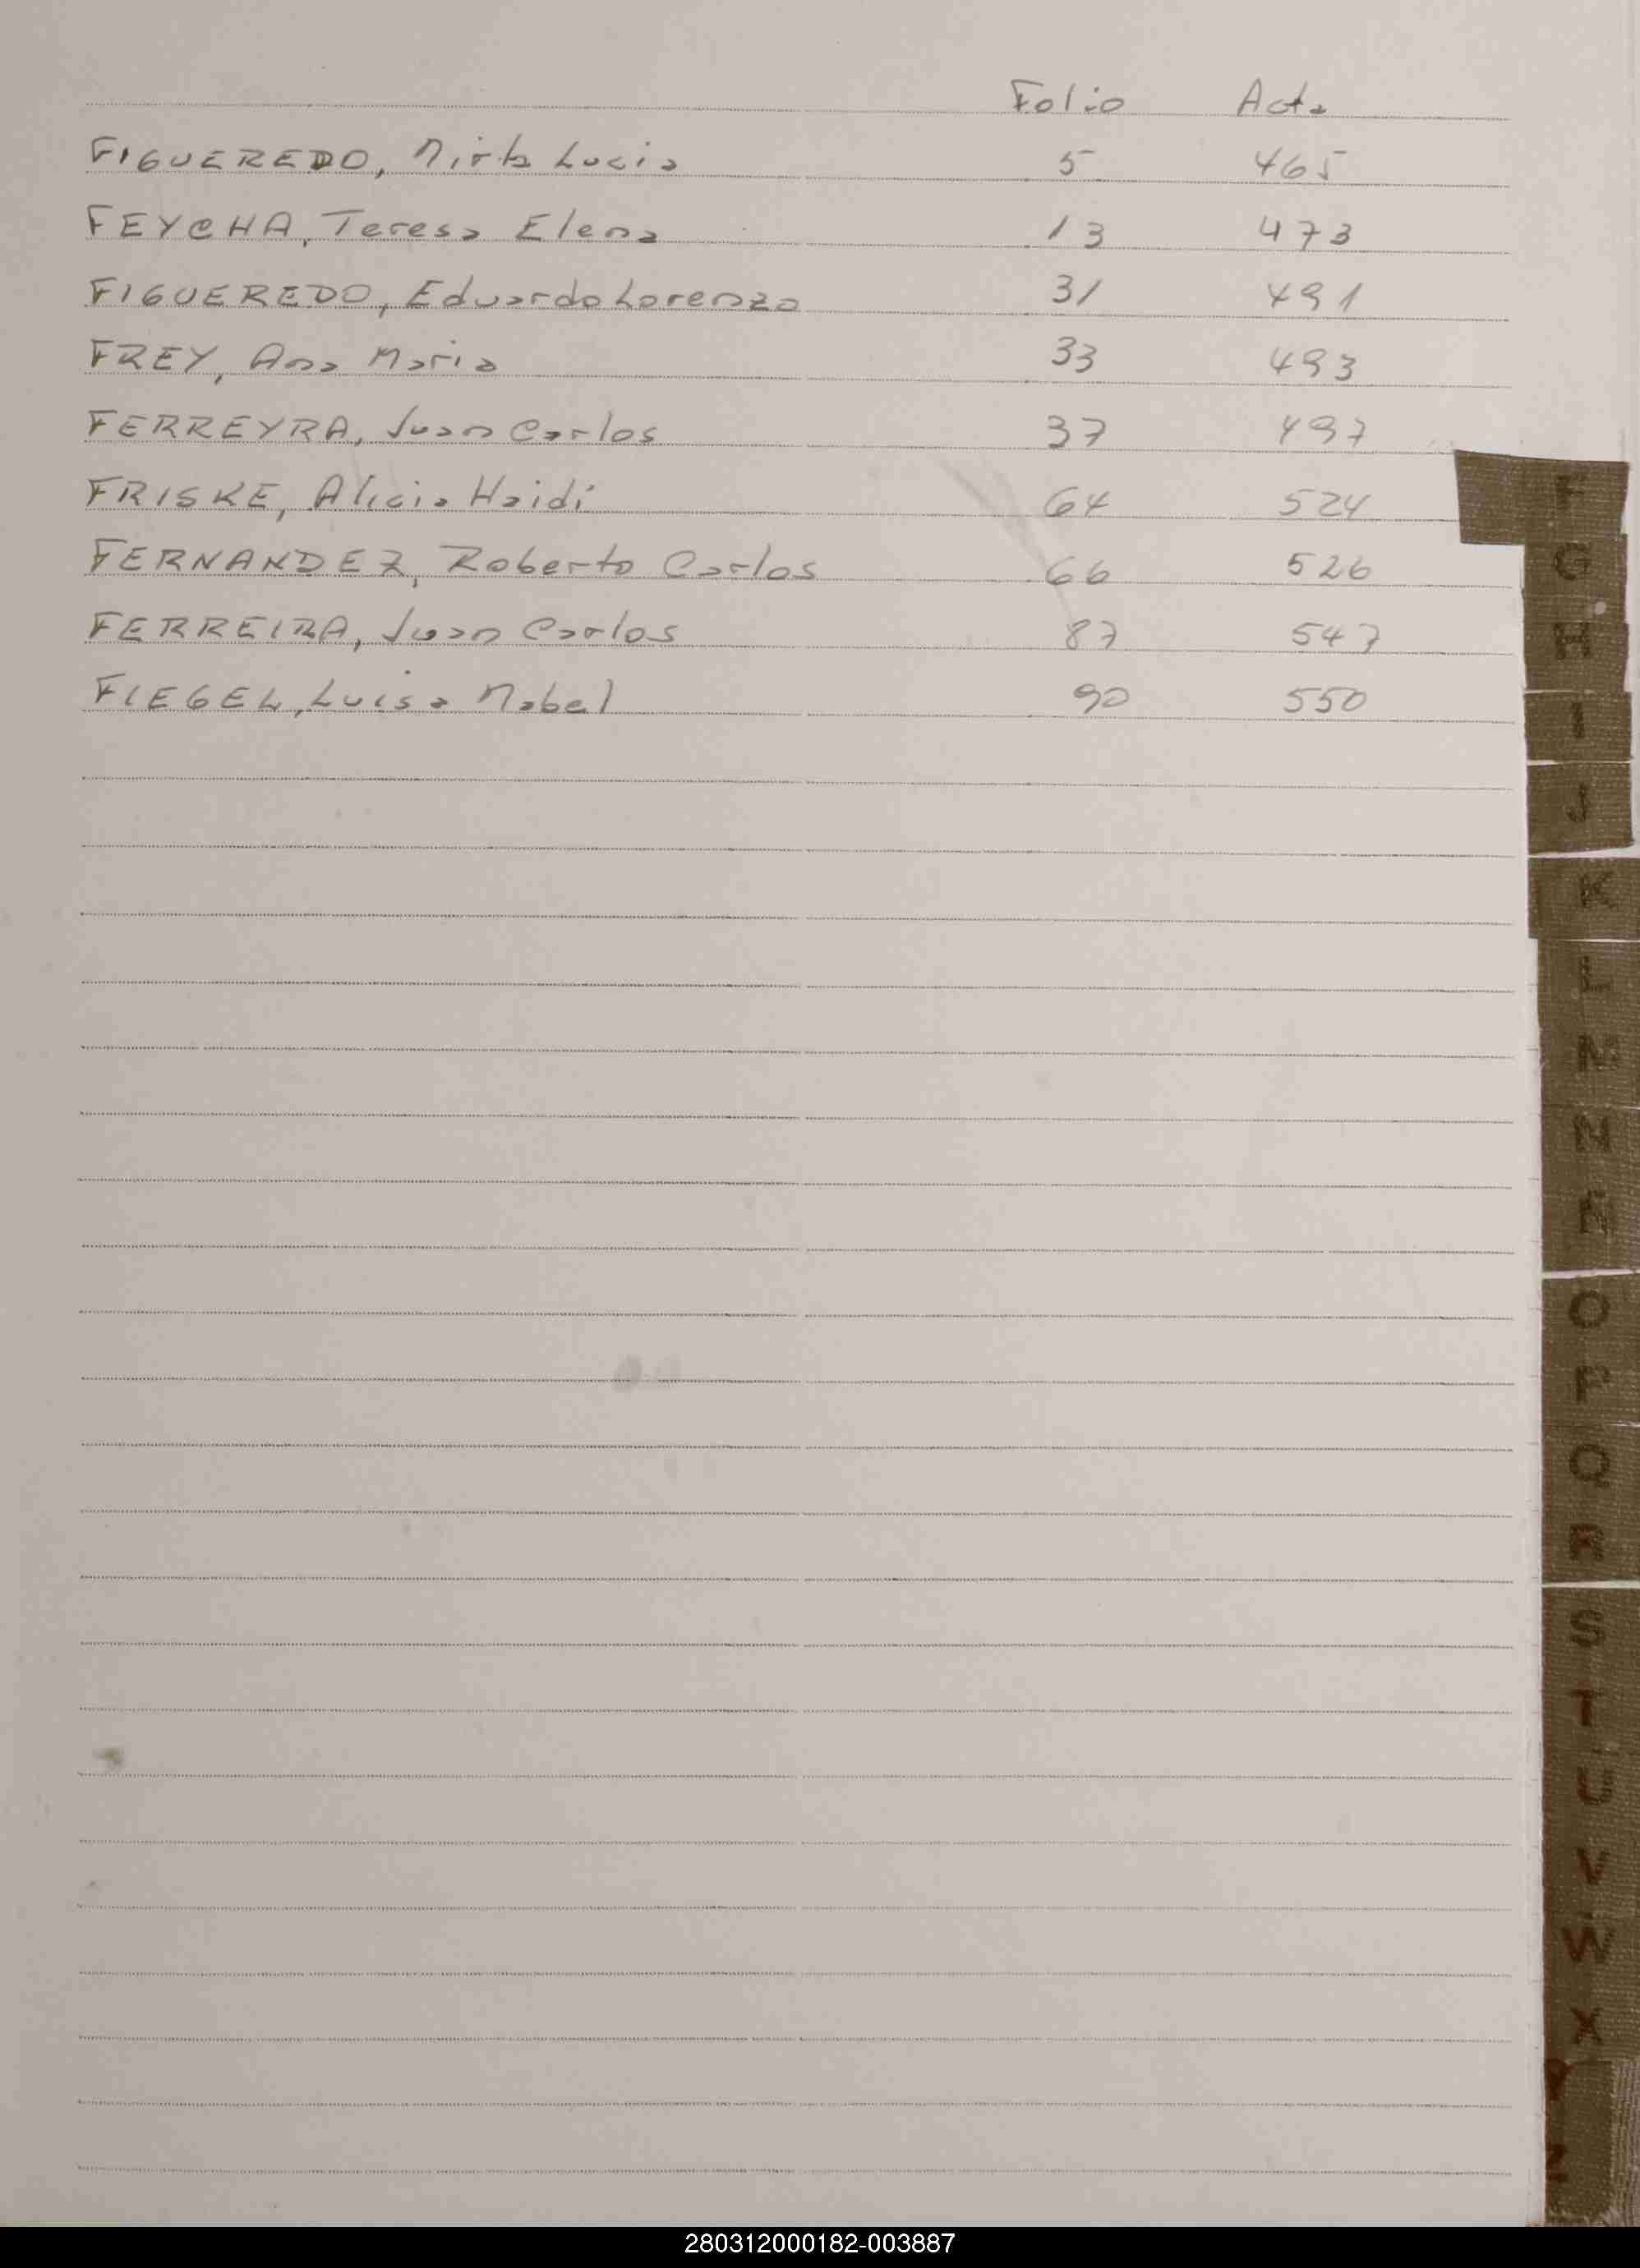 Folio Acta
FIGUEREDO, Mirta Lucia 5 465
FEYCHA, Teresa Elena 13 473
FIGUEREDO, Eduardo Lorenzo 31 491
FREY, Ana Maria 33 493
FERREYRA, Juan Carlos 37 497
FRISKE, Alicia Haidi 64 524
FERNANDEZ, Roberto Carlos 66 526
FERREIRA, Juan Carlos 87 547
FIEGEL, Luisa Mabel 90 550
F
G
H
I
J
K
L
M
N
Ñ
O
P
Q
R
S
T
U
V
W
X
Y
Z
280312000182-003887